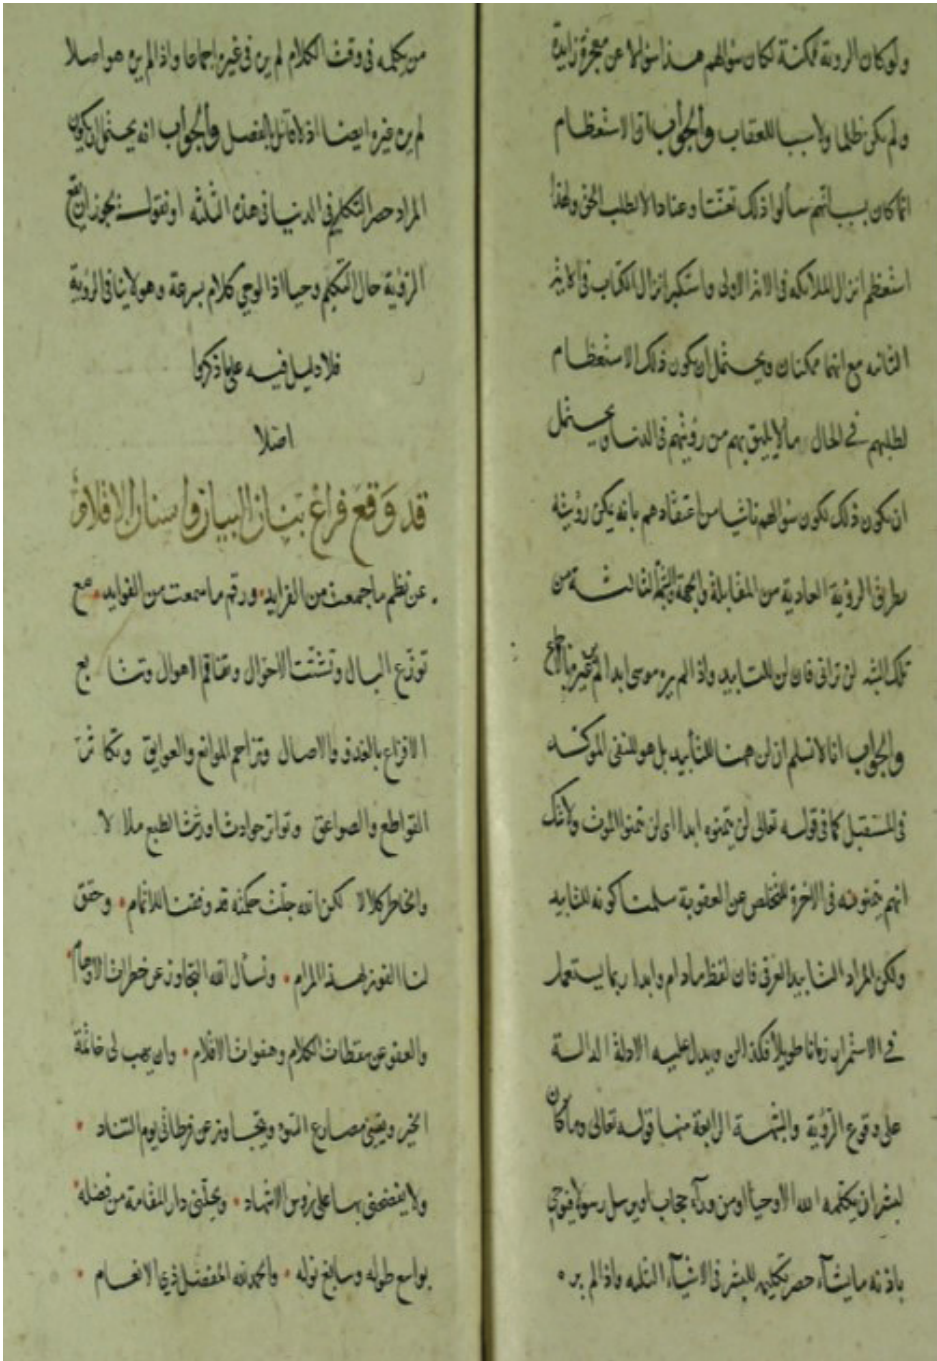 ولو كان الروية ممكنة لكان سؤالهم هذا سؤالا عن معجزة زايدة
ولم يكن ظلما ولا سببا للعقاب والجواب ان الاستعظام
انما كان بسبب انهم سألوا ذلك تعنتا وعنادا لا لطلب الحق ولهذا
استعظم انزال الملائكه فى الاولى واستكبر انزال الكتاب فى الاية
الثانيه مع انهما ممكنان ويحتمل ان يكون ذلك الاستعظام
لطلبهم فى الحال ما لا يليق بهم من رؤيتهم فى الدنيا ويحتمل
ان يكون ذلك لكون سؤالهم ناشيا من اعتقادهم بانه يمكن رؤيته
بطريق الرؤية العادية من المقابلة والجهة الشبهة الثالثة من
تلك الشبه لن ترانى فان لن للتابيد واذا لم يره موسى ابدا لم يره غيره اجماعا
والجواب انا لا نسلم ان لن هنا للتأبيد بل هو للنفى الموكد
فى المستقبل كما فى قوله تعالى لن يتمنوه ابدا اى لن يتمنوا الموت ولا شك
انهم يتمنونه فى الاخرة للتخلص عن العقوبة سلمنا كونه للتابيد
ولكن المراد التابيد العرفى فان لفظ مادام وابدا ربما يستعمل
فى الاستمرار زمانا طويلا فكذا لن ويدل عليه الادلة الدالة
على وقوع الرؤية والشبهة الرابعة منها قوله تعالى وما كان
لبشر ان يكلمه الله الا وحيا او من وراء حجاب او يرسل رسولا فيوحى
باذنه ما يشاء حصر تكليمه للبشر فى الاشياء الثلثه واذا لم يره
من يكلمه فى وقت الكلام لم يره فى غيره اجماعا واذا لم يره هو اصلا
لم يره غيره ايضا اذ لا قائل بالفصل والجواب انه يحتمل ان يكون
المراد حصر التكليم فى الدنيا فى هذه الثلثه او نقول يجوز ان يقع
الرؤية حال التكليم وحيا اذ الوحى كلام بسرعة وهو لا ينافى الرؤية
فلا دليل فيه على ما ذكروا
اصلا
قد وقع فراغ بنان البيان ولسان الاقلام
عن نظم ما جمعت من الفرايد ورقم ما سمعت من الفوايد مع
توزع البال وتشتت الاحوال وتفاقم الاهوال وتتابع
الافزاع بالغدو والاصال وتزاحم الموانع والعوايق وتكاثر
القواطع والصواعق وتواتر حوادث اورثت الطبع ملالا
والخاطر كلالا لكن الله جلت حكمته قد وفقنا للاتمام وحقق
لنا الفوز لهذا المرام ونسأل الله التجاوز عن خطرات الاوهام
والعفو عن سقطات الكلام وهفوات الاقلام وان يهب لى خاتمة
الخير ويقينى مصارع السوء ويتجاوز عن فرطاتى يوم التناد
ولا يفضحنى بها على رؤس الاشهاد ويحلنى دار المقامة من فضله
بواسع طوله وسابغ نوله والحمد لله المفضل ذى الانعام